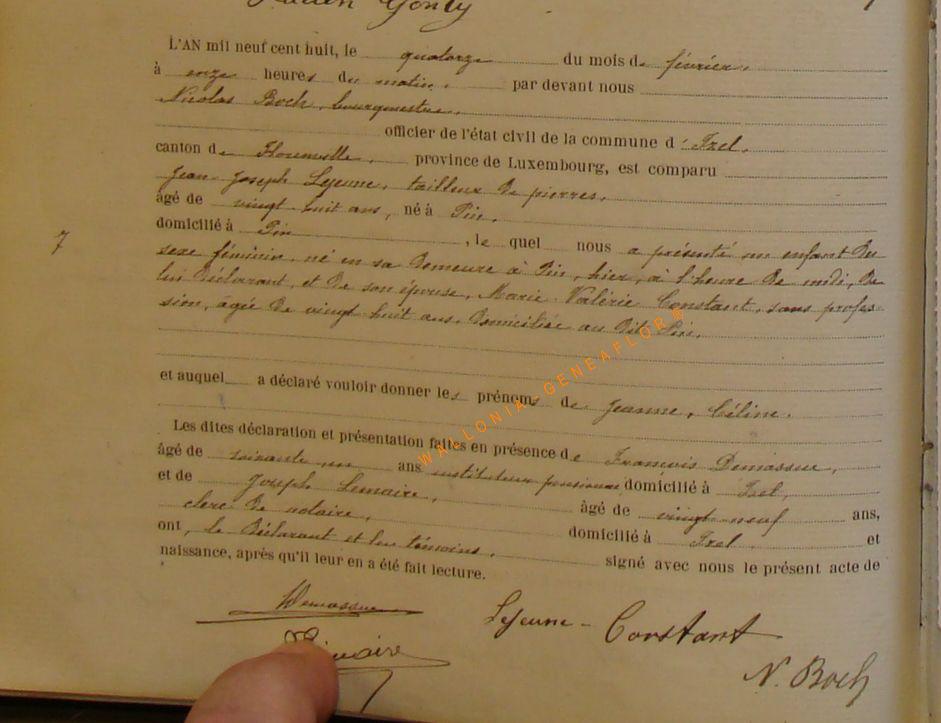 Gonty
L'AN mil neuf cent huit, le quatorze du mois de février,
à onze heures du matin, par devant nous
Nicolas Boch, bourgmestre,
officier de l'état civil de la commune d'Izel,
canton de Florenville, province de Luxembourg, est comparu
Jean Joseph Lejeune, tailleur de pierres,
âgé de vingt huit ans, né à Pin,
domicilié à Pin, lequel nous a présenté un enfant du
sexe féminin, né en sa demeure à Pin, hier, à l'heure de midi, de
7
lui déclarant, et de son épouse, Marie Valérie Constant, sans profes-
sion, âgée de vingt huit ans, domiciliée au dit Pin,
et auquel a déclaré vouloir donner les prénoms de Jeanne, Céline.
Les dites déclaration et présentation faites en présence de François Demasseur,
âgé de soixante un ans instituteur pensionné domicilié à Izel,
et de Joseph Lemaire, âgé de vingt neuf ans,
clerc de notaire, domicilié à Izel et
ont, le déclarant et les témoins, signé avec nous le présent acte de
naissance, après qu'il leur en a été fait lecture.
Lejeune-Constant
N. Boch
WALLONIA-GENEAFLOR®